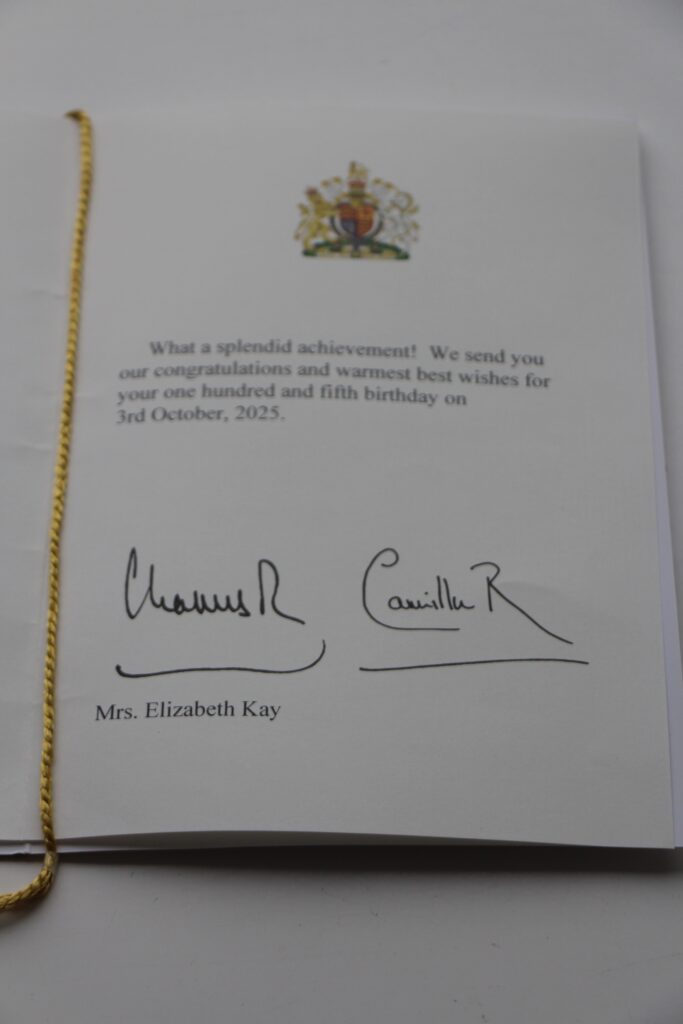 What a splendid achievement! We send you
our congratulations and warmest best wishes for
your one hundred and fifth birthday on
3rd October, 2025.
Charles R Camilla R
Mrs. Elizabeth Kay